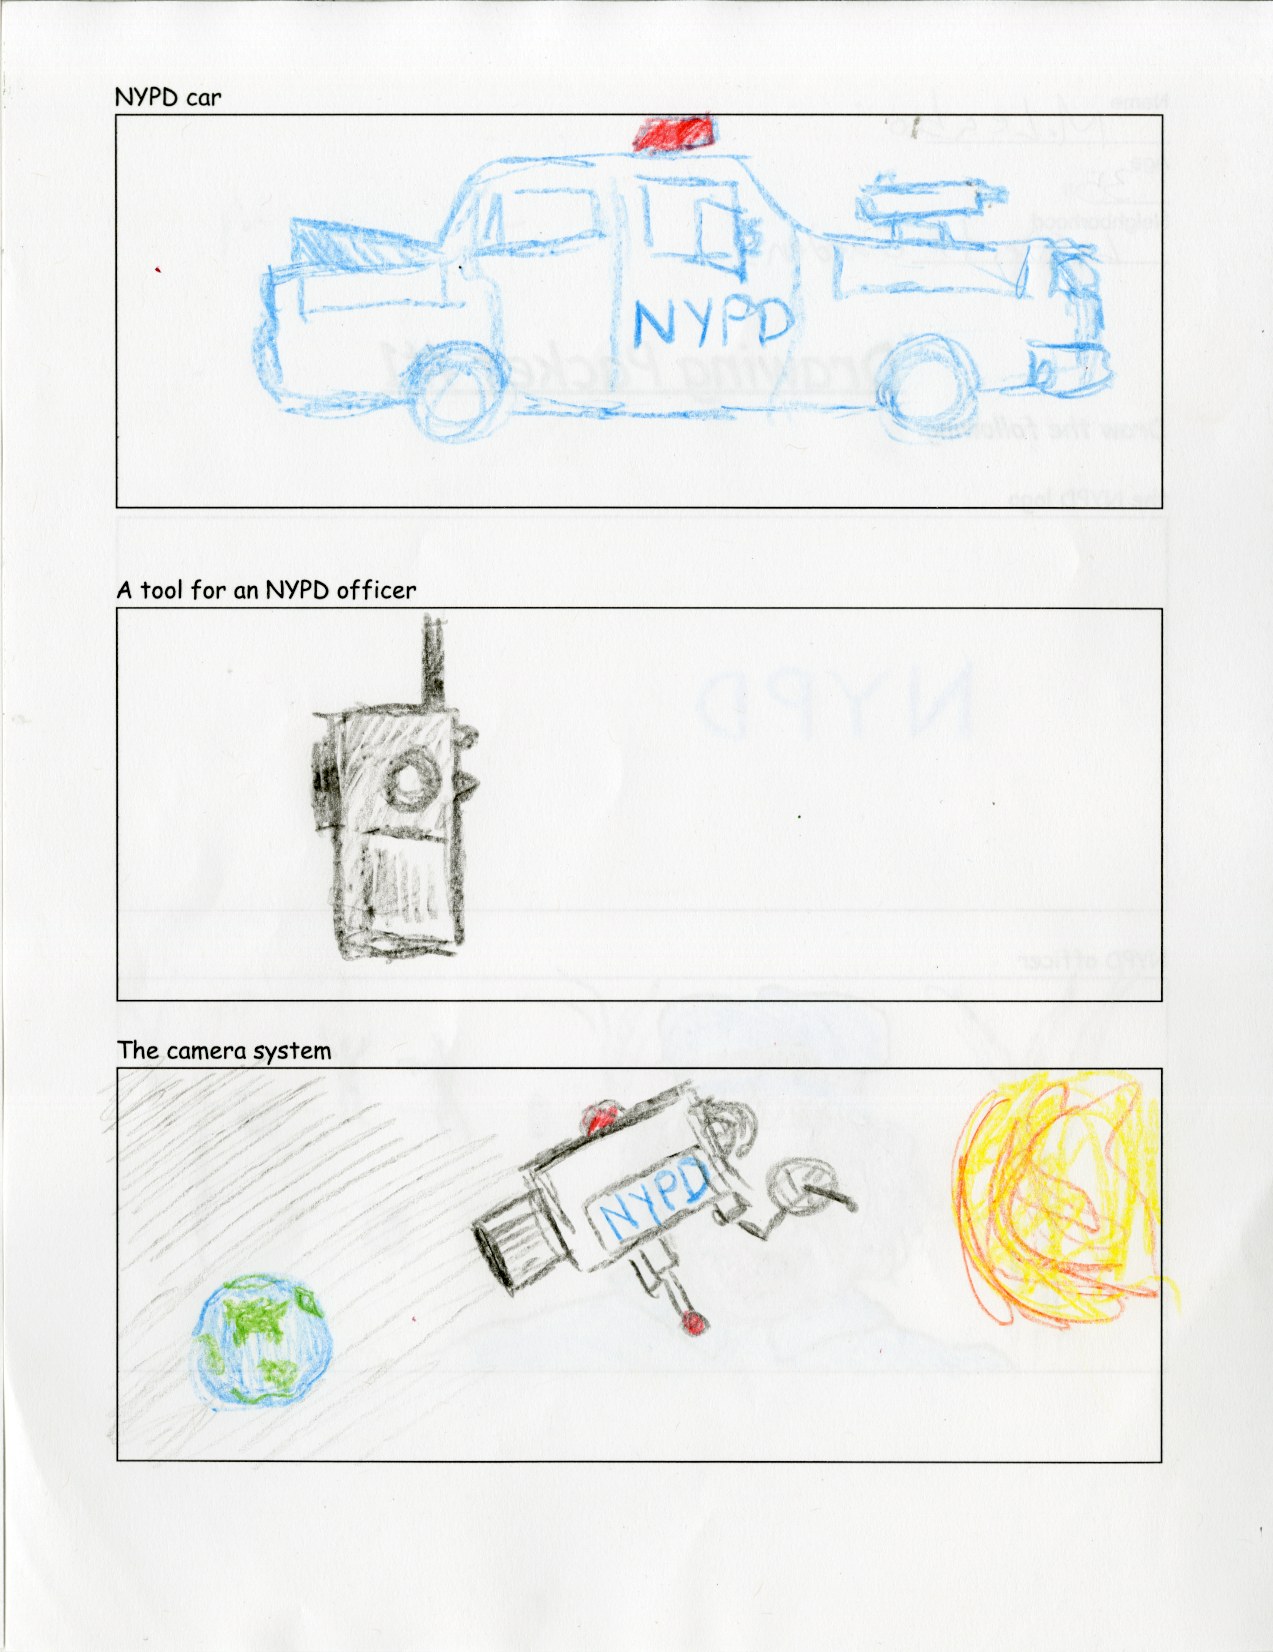 NYPD car
NYPD
A tool for an NYPD officer
The camera system
NYPD